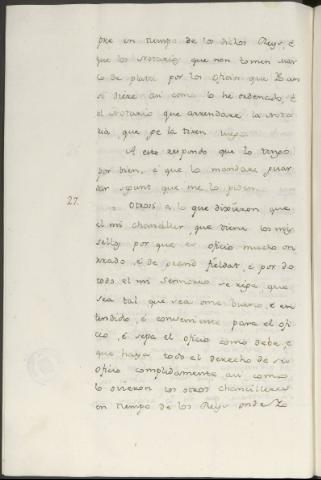 pre en tiempo de los dichos Reys, é
que los Notarios que non tomen mar
co de plata por los oficios que Yo
si diere asi como lo he ordenado, é
el Notario que arrendare la Nota
ria, que pe la
A esto respondo que lo tengo
por bien, é que lo mandare guar
dar segunt que me lo piden.
27. Otrosi a lo que dixieron que
el mi chanciller, que tiene los mis
sellos por que es oficio mucho on
rrado, é de grand fieldat, é por do
todo el mi Sennorio se rige que
sea tal que sea ome bueno, é en
tendido, é conveniente para el ofi
cio, é sepa el oficio como debe, é
que haya todo el derecho de su
oficio complidamente asi como
lo ovieron los otros chancilleres
en tiempo de los Reys onde Yo